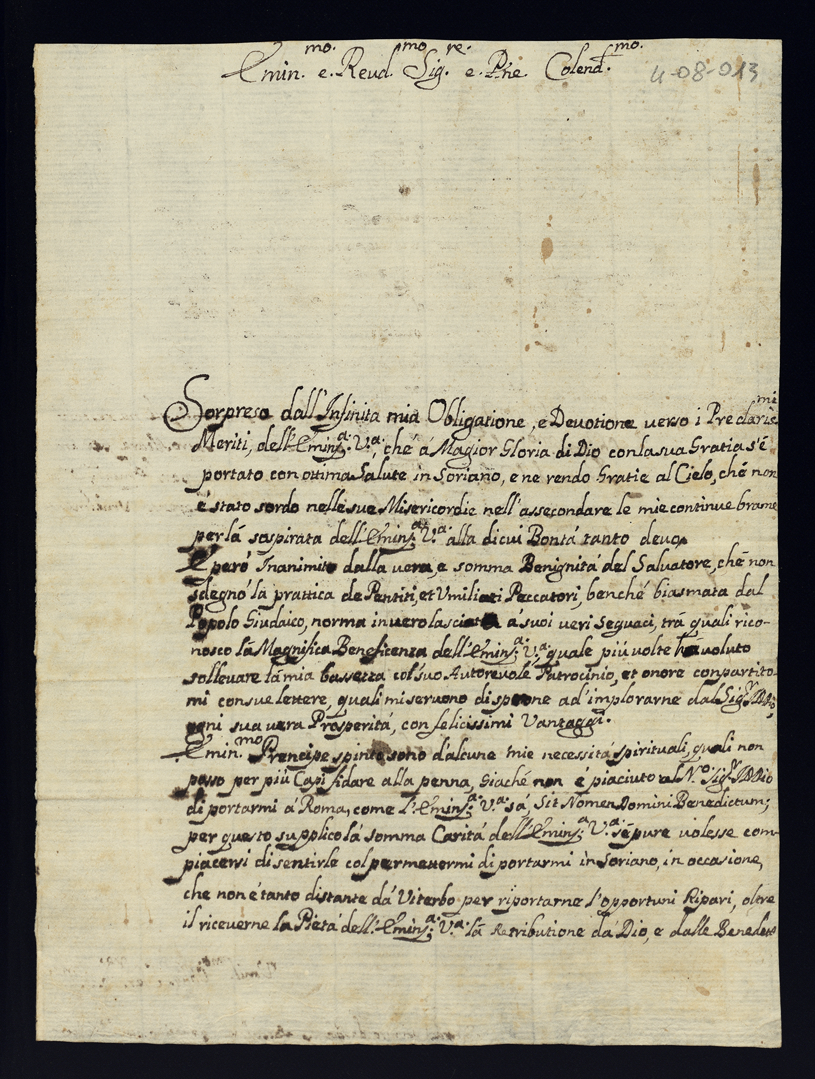 Emin.mo e. Reud.mo Sig.re e. Pne. Colend.mo
4-08-013
Sorpreso dall'Infinita mia Obligatione, e Devotione verso i Preclaris.mi
Meriti, dell'Emin.a V.a, ché á Magior Gloria di Dio con la sua Gratia s'é
portato con ottima Salute in Soriano, e ne rendo Gratie al Cielo, ché non
é stato sordo nelle sue Misericordie nell'assecondare le mie continue brame
per lá sospirata dell'Emin.a V.a alla di cui Bontá tanto devo.
E peró Inanimito dalla vera, e somma Benignitá del Salvatore, ché non
sdegnó lá prattica de Pentiti, et Umiliati Peccatori, benché biasmata dal
Popolo Giudaico, norma in vero lasciata á suoi veri Seguaci, trá quali rico-
nosco lá Magnifica Beneficenza dell'Emin.a V.a quale piú volte há voluto
sollevare lá mia bassezza col suo Autorevole Patrocinio, et onore conpartito-
mi con sue lettere, quali mi servono di sprone ad'implorarne dal Sig.r IDDio,
ogni sua vera Prosperitá, con felicissimi Vantaggi.
Emin.mo Prencipe spinto sono d'alcune mie necessitá spirituali, quali non
posso per piú Capi fidare alla penna, Giaché non é piaciuto al N.o Sig.r IDDio
di portarmi á Roma, come l'Emin.a V.a sá, Sit Nomen Domini Benedictum;
per questo supplico lá somma Caritá dell'Emin.a V.a sé pure volesse com-
piacersi di sentirle col permettermi di portarmi in Soriano, in occasione,
che non é tanto distante dá Viterbo per riportarne l'opportuni Ripari, oltre
il riceverne la Pietá dell'Emin.a V.a lá Retributione da Dio, e dalle Benedette